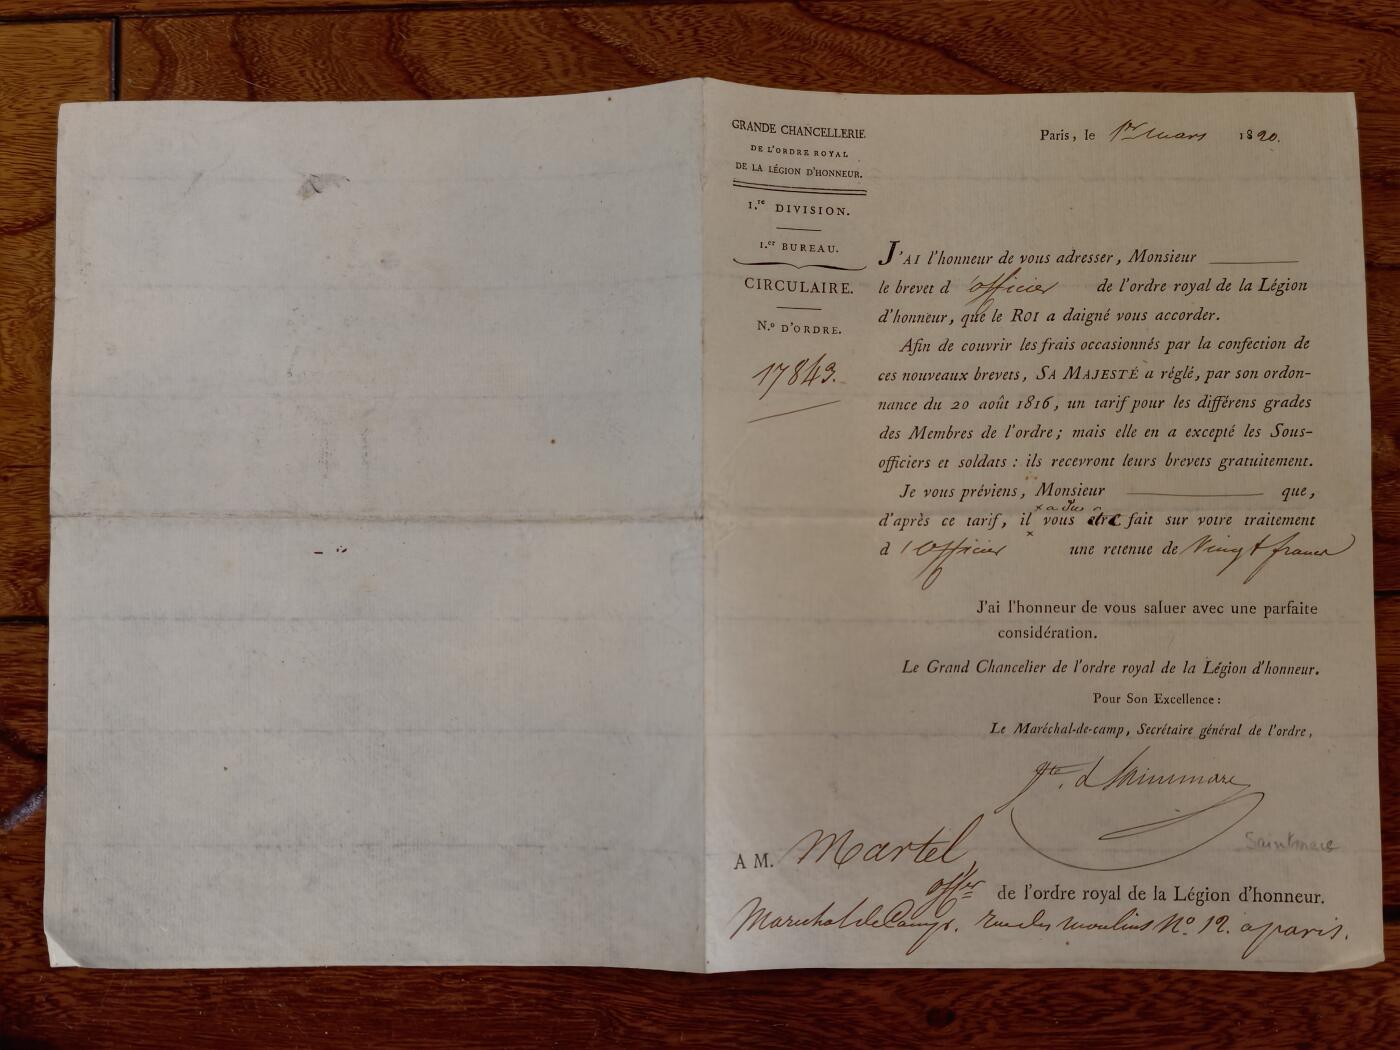 GRANDE CHANCELLERIE
DE L'ORDRE ROYAL
DE LA LÉGION D'HONNEUR.
1.re DIVISION.
1.er BUREAU.
CIRCULAIRE.
N.o D'ORDRE.
17843.
Paris, le 1er mars 1820.
J'AI l'honneur de vous adresser, Monsieur
le brevet d'officier de l'ordre royal de la Légion
d'honneur, que le ROI a daigné vous accorder.
Afin de couvrir les frais occasionnés par la confection de
ces nouveaux brevets, SA MAJESTÉ a réglé, par son ordon-
nance du 20 août 1816, un tarif pour les différens grades
des Membres de l'ordre; mais elle en a excepté les Sous-
officiers et soldats : ils recevront leurs brevets gratuitement.
Je vous préviens, Monsieur que,
d'après ce tarif, il vous être fait sur votre traitement
d'officier une retenue de Vingt francs
J'ai l'honneur de vous saluer avec une parfaite
considération.
Le Grand Chancelier de l'ordre royal de la Légion d'honneur.
Pour Son Excellence :
Le Maréchal-de-camp, Secrétaire général de l'ordre,
Saintmars
A M. Martel
offer de l'ordre royal de la Légion d'honneur.
Marechal de Camp. rue des moulins No. 12. a paris.